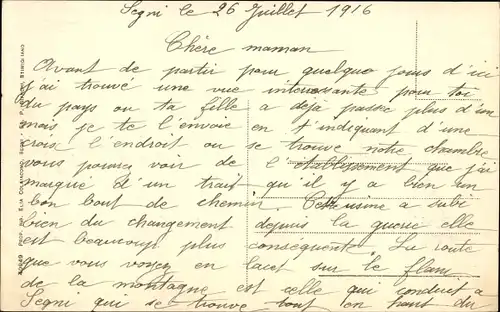 Segni le 26 Juillet 1916
Chère maman
Avant de partir pour quelque jours d'ici
j'ai trouvé une vue intéressante pour toi
du pays ou ta fille a déjà passé plus d'un
mois, je te l'envoie en t'indiquant d'une
croix l'endroit ou se trouve notre chambre
vous pourrez voir de l'établissement que j'ai
marqué d'un trait qu'il y a bien un
bon bout de chemin. Cette usine a subi
bien du changement depuis la guerre elle
est beaucoup plus conséquente. La route
que vous voyez en lacet sur le flanc
de la montagne est celle qui conduit a
Segni qui se trouve tout en haut du